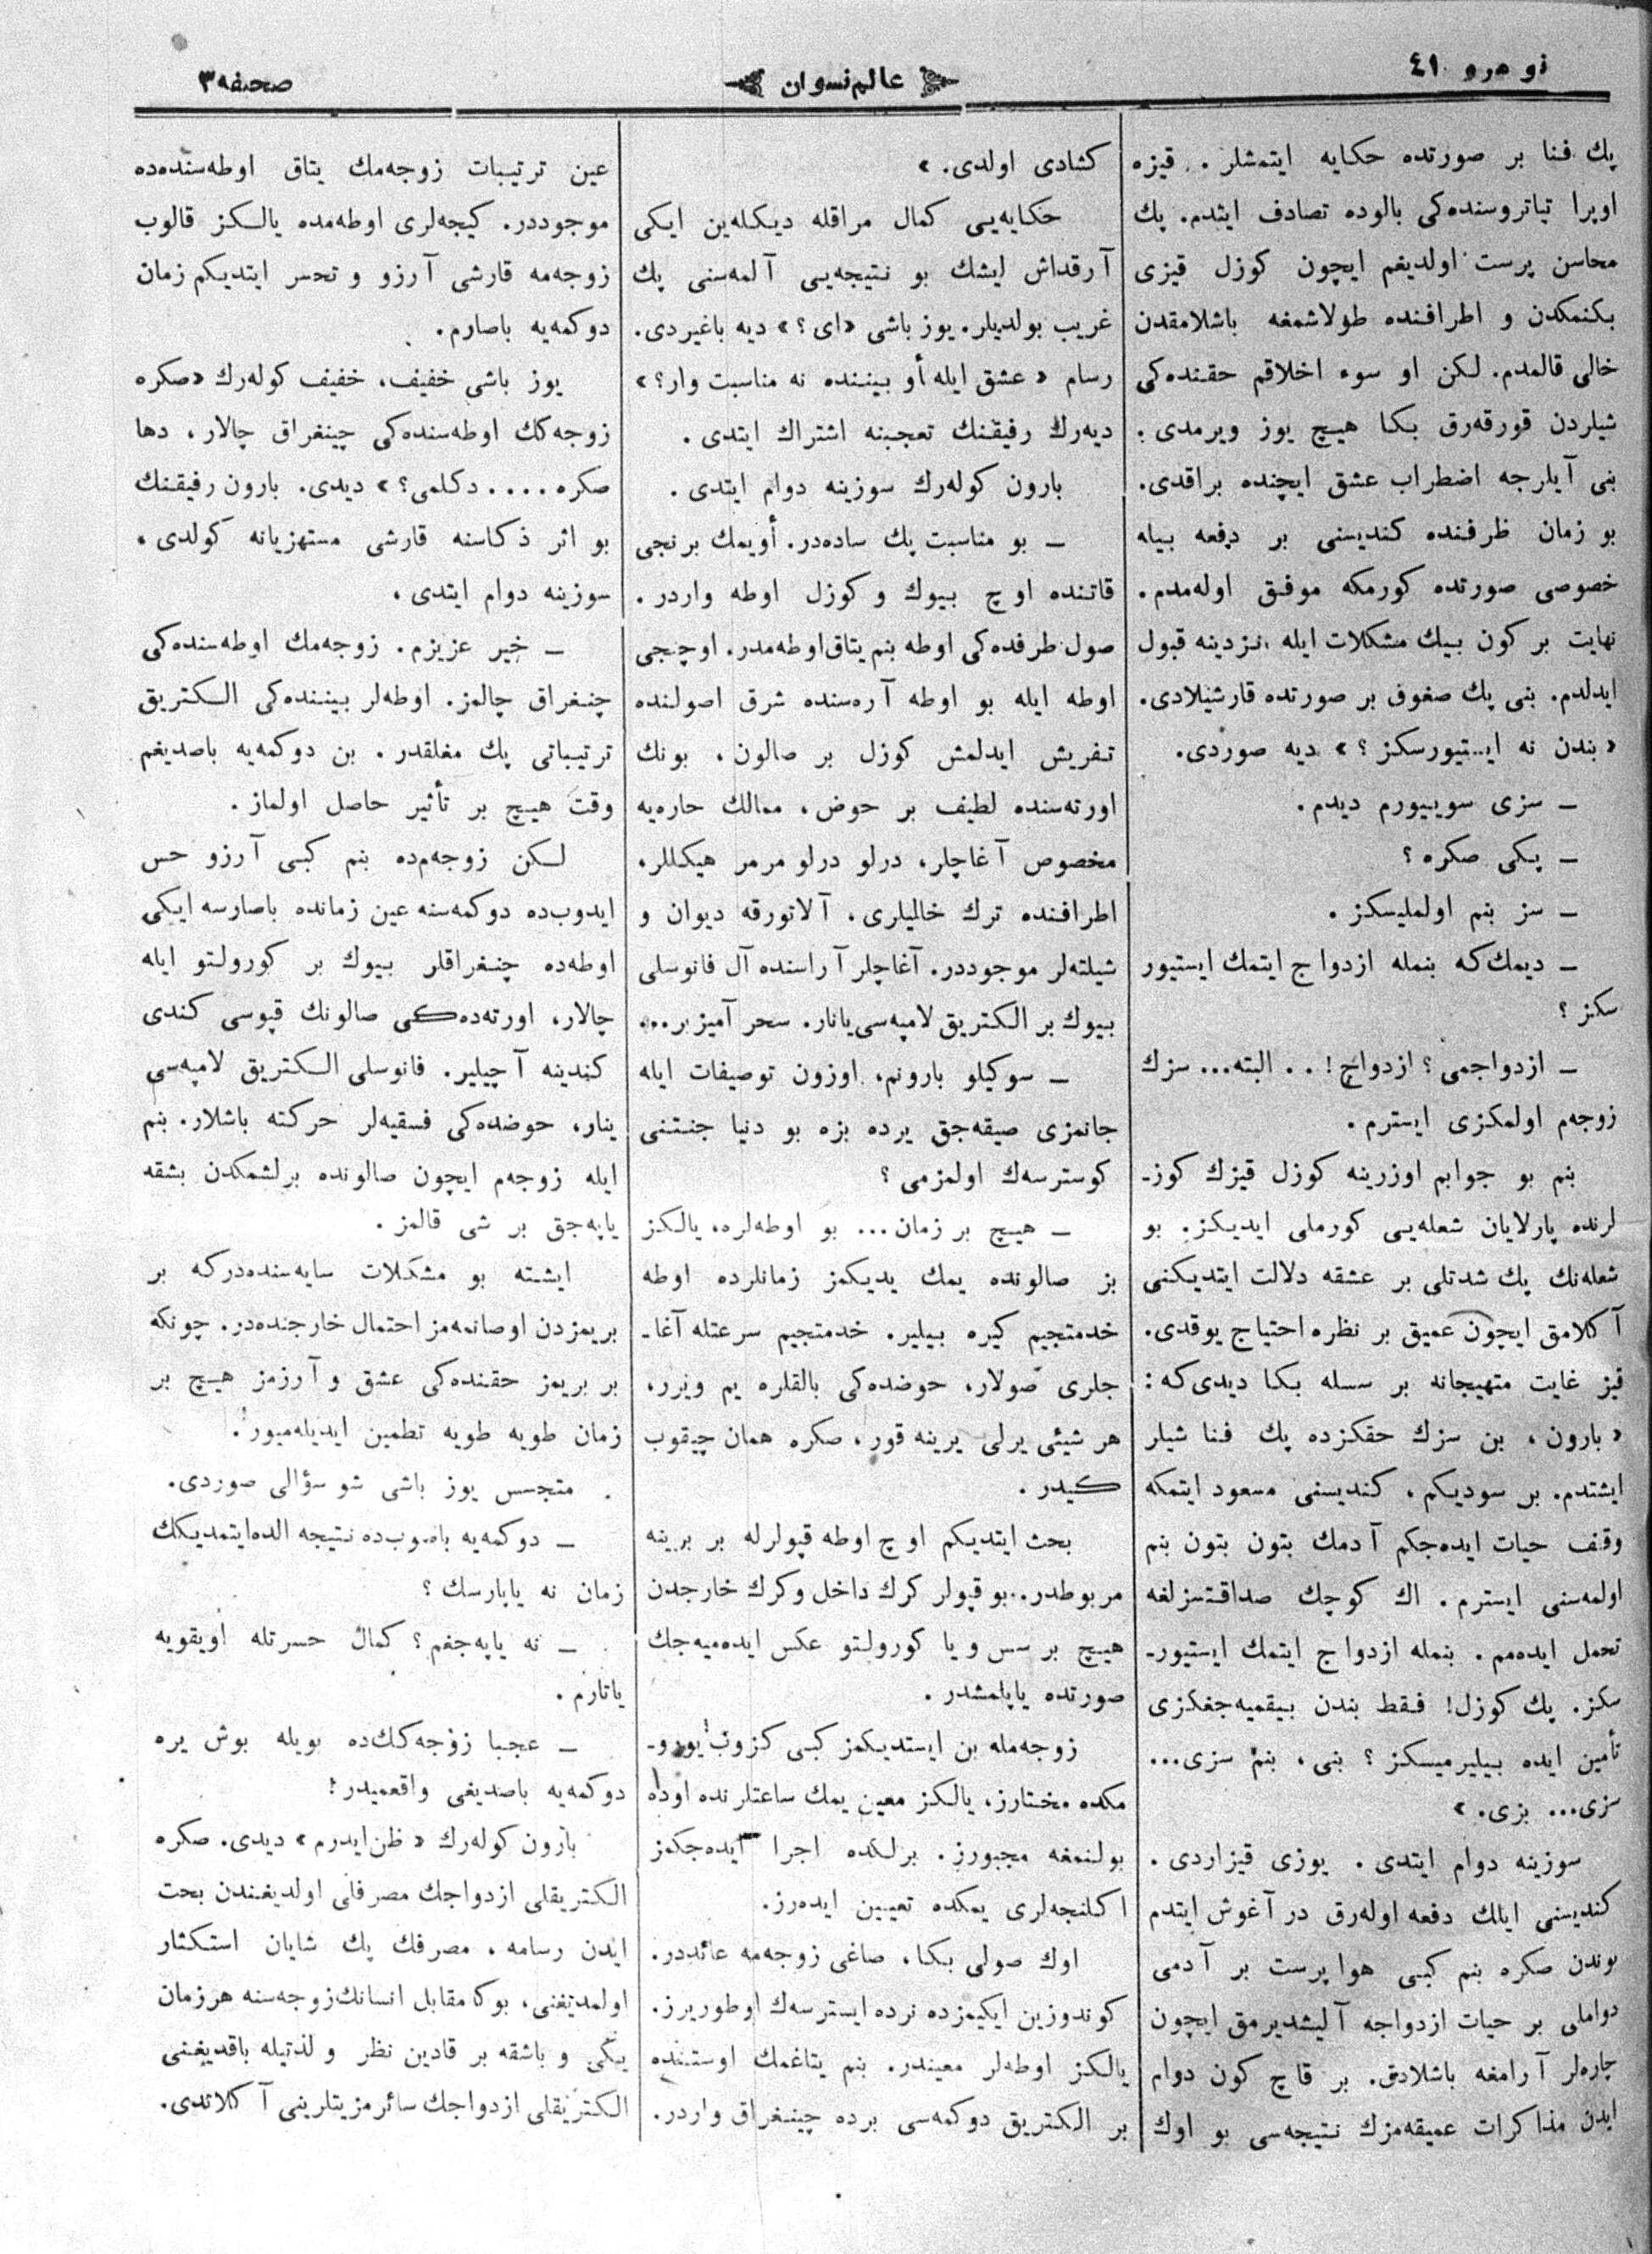 نومرو ٤١
عالم نسوان
صحیفه ٣
پك فنا بر صورتده حكایه ایتمشلر. قیزه
اوپرا تیاتروسنده‌كی بالوده تصادف ایتدم. پك
محاسن پرست اولدیغم ایچون كوزل قیزی
بكنمكدن و اطرافنده طولاشمغه باشلامقدن
خالی قالمدم. لكن او سوء اخلاقم حقنده‌كی
شیلردن قورقه‌رق بكا هیچ یوز ویرمدی.
بنی آیلرجه اضطراب عشق ایچنده براقدی.
بو زمان ظرفنده كندیسنی بر دفعه بیله
خصوصی صورتده كورمكه موفق اوله‌مدم.
نهایت بر كون بیك مشكلات ایله نزدینه قبول
ایدلدم. بنی پك صغوق بر صورتده قارشیلادی.
« بندن نه ایستیورسكز ؟ » دیه صوردی.
ـ سزی سوییورم دیدم.
ـ پكی صكره ؟
ـ سز بنم اولملیسكز .
ـ دیمك‌كه بنمله ازدواج ایتمك ایستیور
سكز ؟
ـ ازدواجمی ؟ ازدواج ! . . البته... سزك
زوجه‌م اولمكزی ایسترم .
بنم بو جوابم اوزرینه كوزل قیزك كوز-
لرنده پارلایان شعله‌یی كورملی ایدیكز. بو
شعله‌نك پك شدتلی بر عشقه دلالت ایتدیكنی
آكلامق ایچون عمیق بر نظره احتیاج یوقدی.
قیز غایت متهیجانه بر سسله بكا دیدی‌كه :
« بارون ، بن سزك حقكزده پك فنا شیلر
ایشتدم. بر سودیكم ، كندیسنی مسعود ایتمكه
وقف حیات ایده‌جكم آدمك بتون بتون بنم
اولمه‌سنی ایسترم . اك كوچك صداقتسزلغه
تحمل ایده‌مم . بنمله ازدواج ایتمك ایستیور-
سكز. پك كوزل! فقط بندن بیقمیه‌جغكزی
تأمین ایده بیلیرمیسكز ؟ بنی ، بنم سزی...
سزی... بزی. »
سوزینه دوام ایتدی . یوزی قیزاردی .
كندیسنی ایلك دفعه اوله‌رق در آغوش ایتدم
بوندن صكره بنم كبی هواپرست بر آدمی
دواملی بر حیات ازدواجه آلیشدیرمق ایچون
چاره‌لر آرامغه باشلادق. بر قاچ كون دوام
ایدن مذاكرات عمیقه‌مزك نتیجه‌سی بو اوك
كشادی اولدی. »
حكایه‌یی كمال مراقله دیكله‌ین ایكی
آرقداش ایشك بو نتیجه‌یی آلمه‌سنی پك
غریب بولدیلر. یوز باشی «ای ؟» دیه باغیردی.
رسام « عشق ایله أو بیننده نه مناسبت وار؟ »
دیه‌رك رفیقنك تعجبنه اشتراك ایتدی .
بارون كوله‌رك سوزینه دوام ایتدی .
ـ بو مناسبت پك ساده‌در. أویمك برنجی
قاتنده اوچ بیوك و كوزل اوطه واردر .
صول طرفده‌كی اوطه بنم یتاق اوطه‌مدر. اوچنجی
اوطه ایله بو اوطه آره‌سنده شرق اصولنده
تفریش ایدلمش كوزل بر صالون ، بونك
اورته‌سنده لطیف بر حوض ، ممالك حاره‌یه
مخصوص آغاچلر، درلو درلو مرمر هیكللر،
اطرافنده ترك خالیلری . آلاتورقه دیوان و
شیلته‌لر موجوددر. آغاچلر آراسنده آل فانوسلی
بیوك بر الكتریق لامپه‌سی یانار. سحر آمیز بر...
ـ سوكیلو بارونم، اوزون توصیفات ایله
جانمزی صیقه‌جق یرده بزه بو دنیا جنتنی
كوسترسه‌ك اولمزمی ؟
ـ هیچ بر زمان ... بو اوطه‌لره، یالكز
بز صالونده یمك یدیكمز زمانلرده اوطه
خدمتجیم كیره بیلیر. خدمتجیم سرعتله آغا-
جلری صولار، حوضده‌كی بالقلره یم ویرر،
هر شیئی یرلی یرینه قور ، صكره همان چیقوب
كیدر .
بحث ایتدیكم اوچ اوطه قپولرله بر برینه
مربوطدر.. بو قپولر كرك داخل و كرك خارجدن
هیچ بر سس و یا كورولتو عكس ایده‌میه‌جك
صورتده یاپلمشدر .
زوجه‌مله بن ایستدیكمز كبی كزوب یورو-
مكده مختارز، یالكز معین یمك ساعتلرنده اوده
بولنمغه مجبورز. برلكده اجرا ایده‌جكمز
اكلنجه‌لری یمكده تعیین ایده‌رز.
اوك صولی بكا ، صاغی زوجه‌مه عائددر.
كوندوزین ایكیمزده نرده ایسترسه‌ك اوطوریرز.
یالكز اوطه‌لر معیندر. بنم یتاغمك اوستنده
بر الكتریق دوكمه‌سی برده چینغراق واردر.
عین ترتیبات زوجه‌مك یتاق اوطه‌سنده‌ده
موجوددر. كیجه‌لری اوطه‌مده یالكز قالوب
زوجه‌مه قارشی آرزو و تحسر ایتدیكم زمان
دوكمه‌یه باصارم.
یوز باشی خفیف، خفیف كوله‌رك «صكره
زوجه‌كك اوطه‌سنده‌كی چینغراق چالار ، دها
صكره .... دكلمی؟ » دیدی. بارون رفیقنك
بو اثر ذكاسنه قارشی مستهزیانه كولدی ،
سوزینه دوام ایتدی ،
ـ خیر عزیزم . زوجه‌مك اوطه‌سنده‌كی
چنغراق چالمز. اوطه‌لر بیننده‌كی الكتریق
ترتیباتی پك مغلقدر . بن دوكمه‌یه باصدیغم
وقت هیچ بر تأثیر حاصل اولماز .
لكن زوجه‌م‌ده بنم كبی آرزو حس
ایدوب‌ده دوكمه‌سنه عین زمانده باصارسه ایكی
اوطه‌ده چنغراقلر بیوك بر كورولتو ایله
چالار، اورته‌ده‌كی صالونك قپوسی كندی
كندینه آچیلیر. فانوسلی الكتریق لامپه‌سی
ینار، حوضده‌كی فسقیه‌لر حركته باشلار. بنم
ایله زوجه‌م ایچون صالونده برلشمكدن بشقه
یاپه‌جق بر شی قالمز .
ایشته بو مشكلات سایه‌سنده‌دركه بر
بریمزدن اوصانمه‌مز احتمال خارجنده‌در. چونكه
بر بریمز حقنده‌كی عشق و آرزمز هیچ بر
زمان طویه طویه تطمین ایدیله‌میور.
متجسس یوز باشی شو سؤالی صوردی.
ـ دوكمه‌یه باصوب‌ده نتیجه الده ایتمدیكك
زمان نه یاپارسك ؟
ـ نه یاپه‌جغم ؟ كمال حسرتله اویقویه
یاتارم .
ـ عجبا زوجه‌كك‌ده بویله بوش یره
دوكمه‌یه باصدیغی واقعمیدر؟
بارون كوله‌رك « ظن ایدرم » دیدی. صكره
الكتریقلی ازدواجك مصرفلی اولدیغندن بحث
ایدن رسامه ، مصرفك پك شایان استكثار
اولمدیغنی، بوكا مقابل انسانك زوجه‌سنه هر زمان
یكی و باشقه بر قادین نظر و لذتیله باقدیغنی
الكتریقلی ازدواجك سائر مزیتلرینی آكلاتدی.